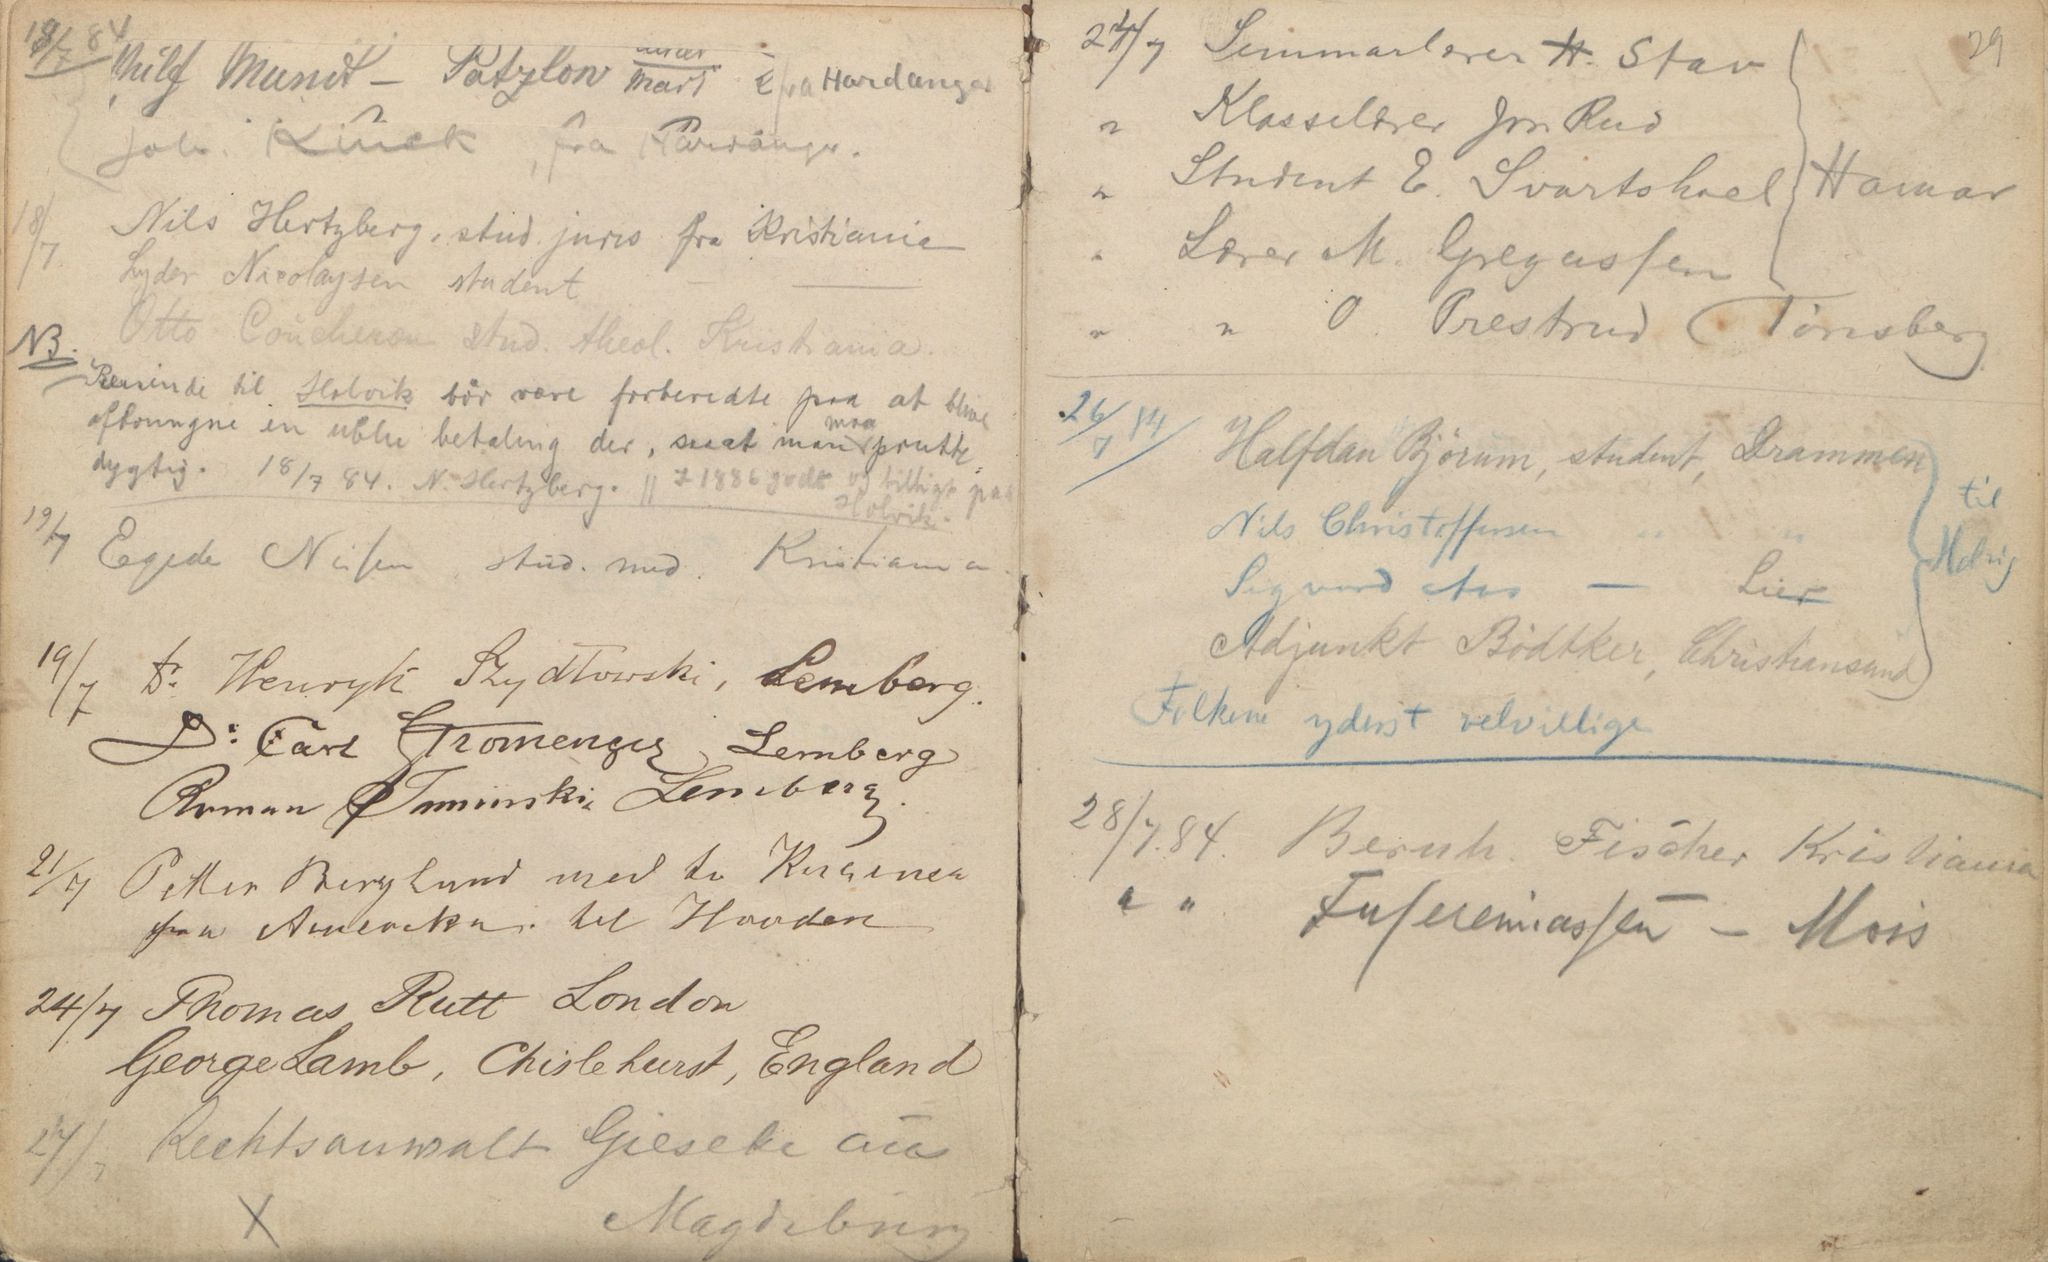 18/7 84
Mundt – Patzlow fra Hardanger
Joh. Kück, fra Hardanger.
18/7. Nils Hertzberg, stud. juris fra Kristiania
Lyder Nicolaysen student — —
Otto Coucheron stud. theol. Kristiania.
NB.
Reisende til Holvik bör være forberedte paa at blive
aftvungne en ublu betaling der, saaat man maa prutte
dygtig. 18/7 84. N. Hertzberg. || 7 1886 godt og billigt paa
Holvik.
19/7 Egede Nissen stud. med. Kristiania.
19/7 Dr. Henryk Szydłowski, Lemberg.
Dr. Carl Lemberg
Roman Lemberg.
21/7 Petter Berglund med to
fra Amerika. til
24/7 Thomas Rutt London
George Lamb, Chislehurst, England
27/7 Rechtsanwalt Gieseke aus
X Magdeburg
29
24/7 Seminarlærer H. Stav
" Klasselærer Jon Rud
" Student E. Svartshoel } Hamar
" Lærer M. Gregussen
" " O. Prestrud (Tönsberg
26/7 84 Halfdan Björum, student, Drammen
Nils Christoffersen " " til
Sigvard Aas — Lier
Adjunkt Bödtker, Christiansund
Folkene yderst velvillige
28/7.84. Bernh. Fischer Kristiania
" " – Mois